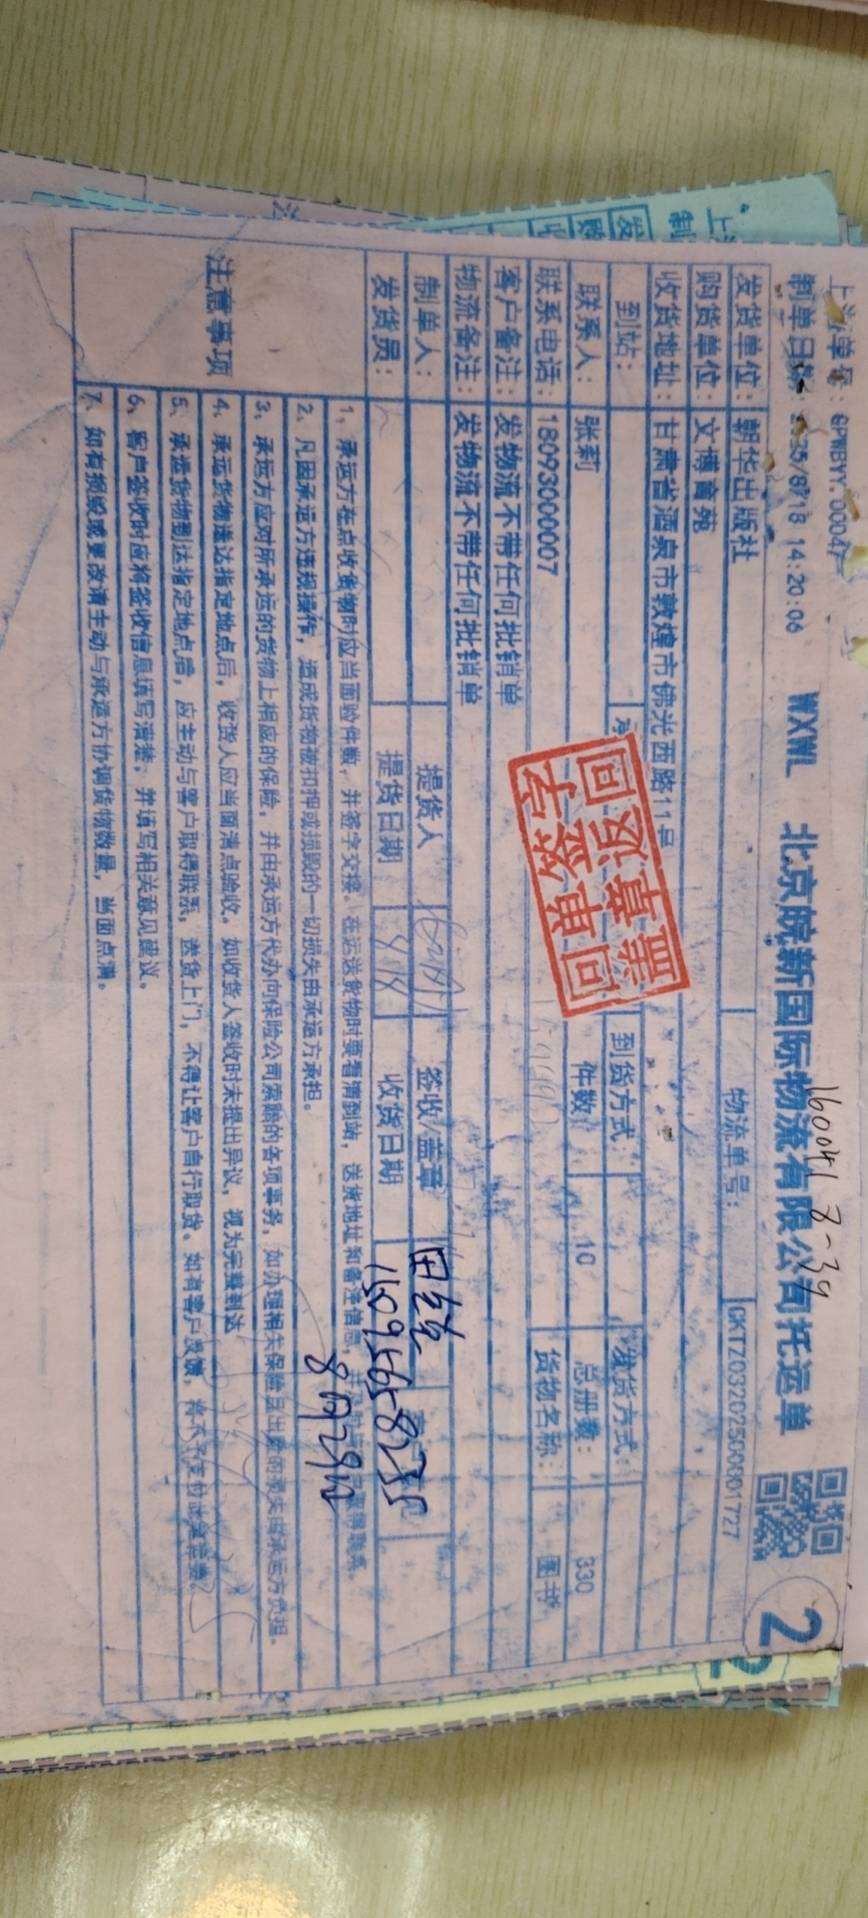 制单日期:2025/8/18 14:20:06 WXWL 北京皖新国际物流有限公司托运单 2
160041 8-39
发货单位: 朝华出版社 物流单号: CKTZ03202500001727
购货单位: 文博育苑
收货地址: 甘肃省酒泉市敦煌市佛光西路11号
到站: 到货方式: 发货方式:
联系人: 张莉 件数: 10 总册数: 330
联系电话: 18093000007 货物名称: 图书
客户备注: 发物流不带任何批销单
物流备注: 发物流不带任何批销单
制单人: 提货人 签收/盖章
发货员: 提货日期 收货日期
8月29日
回返盖章
回单签字
注意事项
1、承运方在点收货物时应当面验件数,并签字交接。在运送货物时要看清到站,送货地址和备注信息,
2、凡因承运方违规操作,造成货物被扣押或损毁的一切损失由承运方承担。
3、承运方应对所承运的货物上相应的保险,并由承运方代办向保险公司索赔的各项事务,如办理相关保险且出险的损失由承运方负担。
4、承运货物送达指定地点后,收货人应当面清点验收。如收货人签收时未提出异议,视为完整到达
5、承运货物到达指定地点后,应主动与客户取得联系,送货上门,不得让客户自行取货。如有客户反馈,
6、客户签收时应将签收信息填写清楚,并填写相关意见建议。
7、如有损毁或更改请主动与承运方协调货物数量,当面点清。